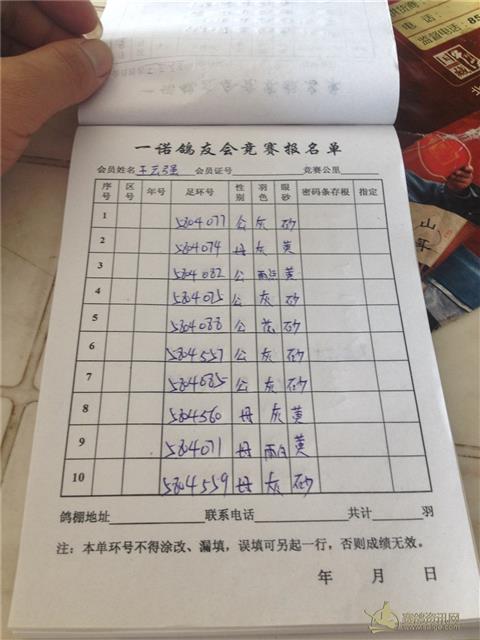 一诺鸽友会竞赛报名单
会员姓名 王云强 会员证号 竞赛公里
序号 区号 年号 足环号 性别 羽色 眼砂 密码条存根 指定
1 5804077 公 灰 砂
2 5804074 母 灰 黄
3 5804082 公 雨点 黄
4 5804075 公 灰 砂
5 5804088 公 花 砂
6 5804557 公 灰 砂
7 5804085 公 灰 砂
8 5804560 母 灰 黄
9 5804071 母 雨白 黄
10 5804559 母 灰 砂
鸽棚地址 联系电话 共计 羽
注：本单环号不得涂改、漏填，误填可另起一行，否则成绩无效。
年 月 日
电话：
监督电话：85
中国
北
山
赛鸽资讯网
www.saige.com